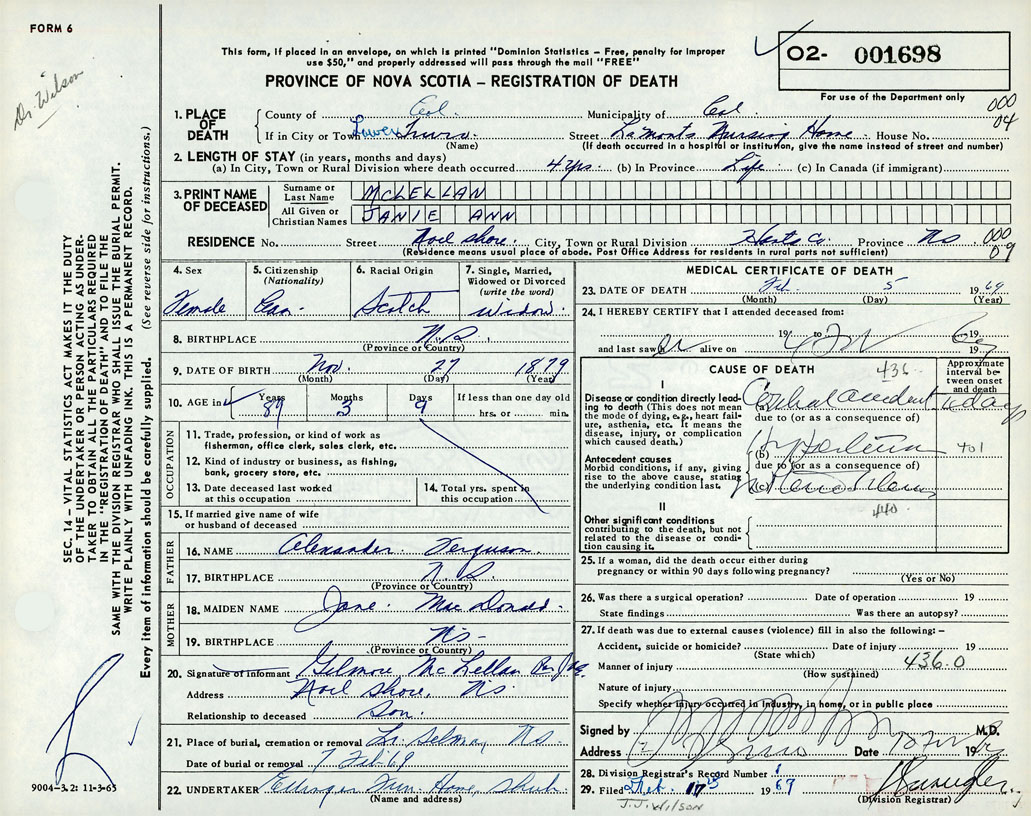 FORM 6
Dr. Wilson
This form, if placed in an envelope, on which is printed "Dominion Statistics – Free, penalty for improper
use $50," and properly addressed will pass through the mail "FREE"
PROVINCE OF NOVA SCOTIA – REGISTRATION OF DEATH
O2- 001698
For use of the Department only
000
04
1. PLACE OF DEATH
County of Col. Municipality of Col
If in City or Town Lower Truro. Street LaMonts Nursing Home House No.
(Name) (If death occurred in a hospital or institution, give the name instead of street and number)
2. LENGTH OF STAY (in years, months and days)
(a) In City, Town or Rural Division where death occurred 4 yrs. (b) In Province Life (c) In Canada (if immigrant)
3. PRINT NAME OF DECEASED
Surname or Last Name McLELLAN
All Given or Christian Names JANIE ANN
RESIDENCE No. Street Noel Shore. City, Town or Rural Division Hants Co. Province N.S. 000
09
(Residence means usual place of abode. Post Office Address for residents in rural parts not sufficient)
4. Sex Female
5. Citizenship (Nationality) Can.
6. Racial Origin Scotch
7. Single, Married, Widowed or Divorced (write the word) Widow.
8. BIRTHPLACE N.S.
(Province or Country)
9. DATE OF BIRTH Nov. 27 1879
(Month) (Day) (Year)
10. AGE in Years 89 Months 3 Days 9 If less than one day old
hrs. or min.
OCCUPATION
11. Trade, profession, or kind of work as
fisherman, office clerk, sales clerk, etc.
12. Kind of industry or business, as fishing,
bank, grocery store, etc.
13. Date deceased last worked
at this occupation
14. Total yrs. spent in
this occupation
15. If married give name of wife
or husband of deceased
FATHER
16. NAME Alexander Ferguson.
17. BIRTHPLACE N.S.
(Province or Country)
MOTHER
18. MAIDEN NAME Jane. MacDonald.
19. BIRTHPLACE N.S.
(Province or Country)
20. Signature of informant Gilmore McLellan
Address Noel Shore N.S.
Relationship to deceased Son.
21. Place of burial, cremation or removal Lr. Selma, N.S.
Date of burial or removal 7 Feb 69
22. UNDERTAKER Ettinger Fun. Home, Shub.
(Name and address)
MEDICAL CERTIFICATE OF DEATH
23. DATE OF DEATH Feb. 5 1969
(Month) (Day) (Year)
24. I HEREBY CERTIFY that I attended deceased from:
19 to 19
and last saw h er alive on 19
CAUSE OF DEATH 436
Approximate interval between onset and death
I
Disease or condition directly leading
to death (This does not mean
the mode of dying, e.g., heart failure,
asthenia, etc. It means the
disease, injury, or complication
which caused death.)
(a) Cerebral accident 1 day
due to (or as a consequence of)
Antecedent causes
Morbid conditions, if any, giving
rise to the above cause, stating
the underlying condition last.
(b) Hypertension 401
due to (or as a consequence of)
(c)
440
II
Other significant conditions
contributing to the death, but not
related to the disease or condition
causing it.
25. If a woman, did the death occur either during
pregnancy or within 90 days following pregnancy?
(Yes or No)
26. Was there a surgical operation? Date of operation 19
State findings Was there an autopsy?
27. If death was due to external causes (violence) fill in also the following: –
Accident, suicide or homicide? Date of injury 19
(State which)
Manner of injury 436.0
(How sustained)
Nature of injury
Specify whether injury occurred in industry, in home, or in public place
Signed by M.D.
Address Truro Date 19
28. Division Registrar's Record Number
29. Filed Feb. 19 69
(Division Registrar)
J.J. WILSON
SEC. 14 – VITAL STATISTICS ACT MAKES IT THE DUTY
OF THE UNDERTAKER OR PERSON ACTING AS UNDERTAKER
TO OBTAIN ALL THE PARTICULARS REQUIRED
IN THE "REGISTRATION OF DEATH" AND TO FILE THE
SAME WITH THE DIVISION REGISTRAR WHO SHALL ISSUE THE BURIAL PERMIT.
WRITE PLAINLY WITH UNFADING INK. THIS IS A PERMANENT RECORD.
Every item of information should be carefully supplied. (See reverse side for instructions.)
9004-3.2: 11-3-65